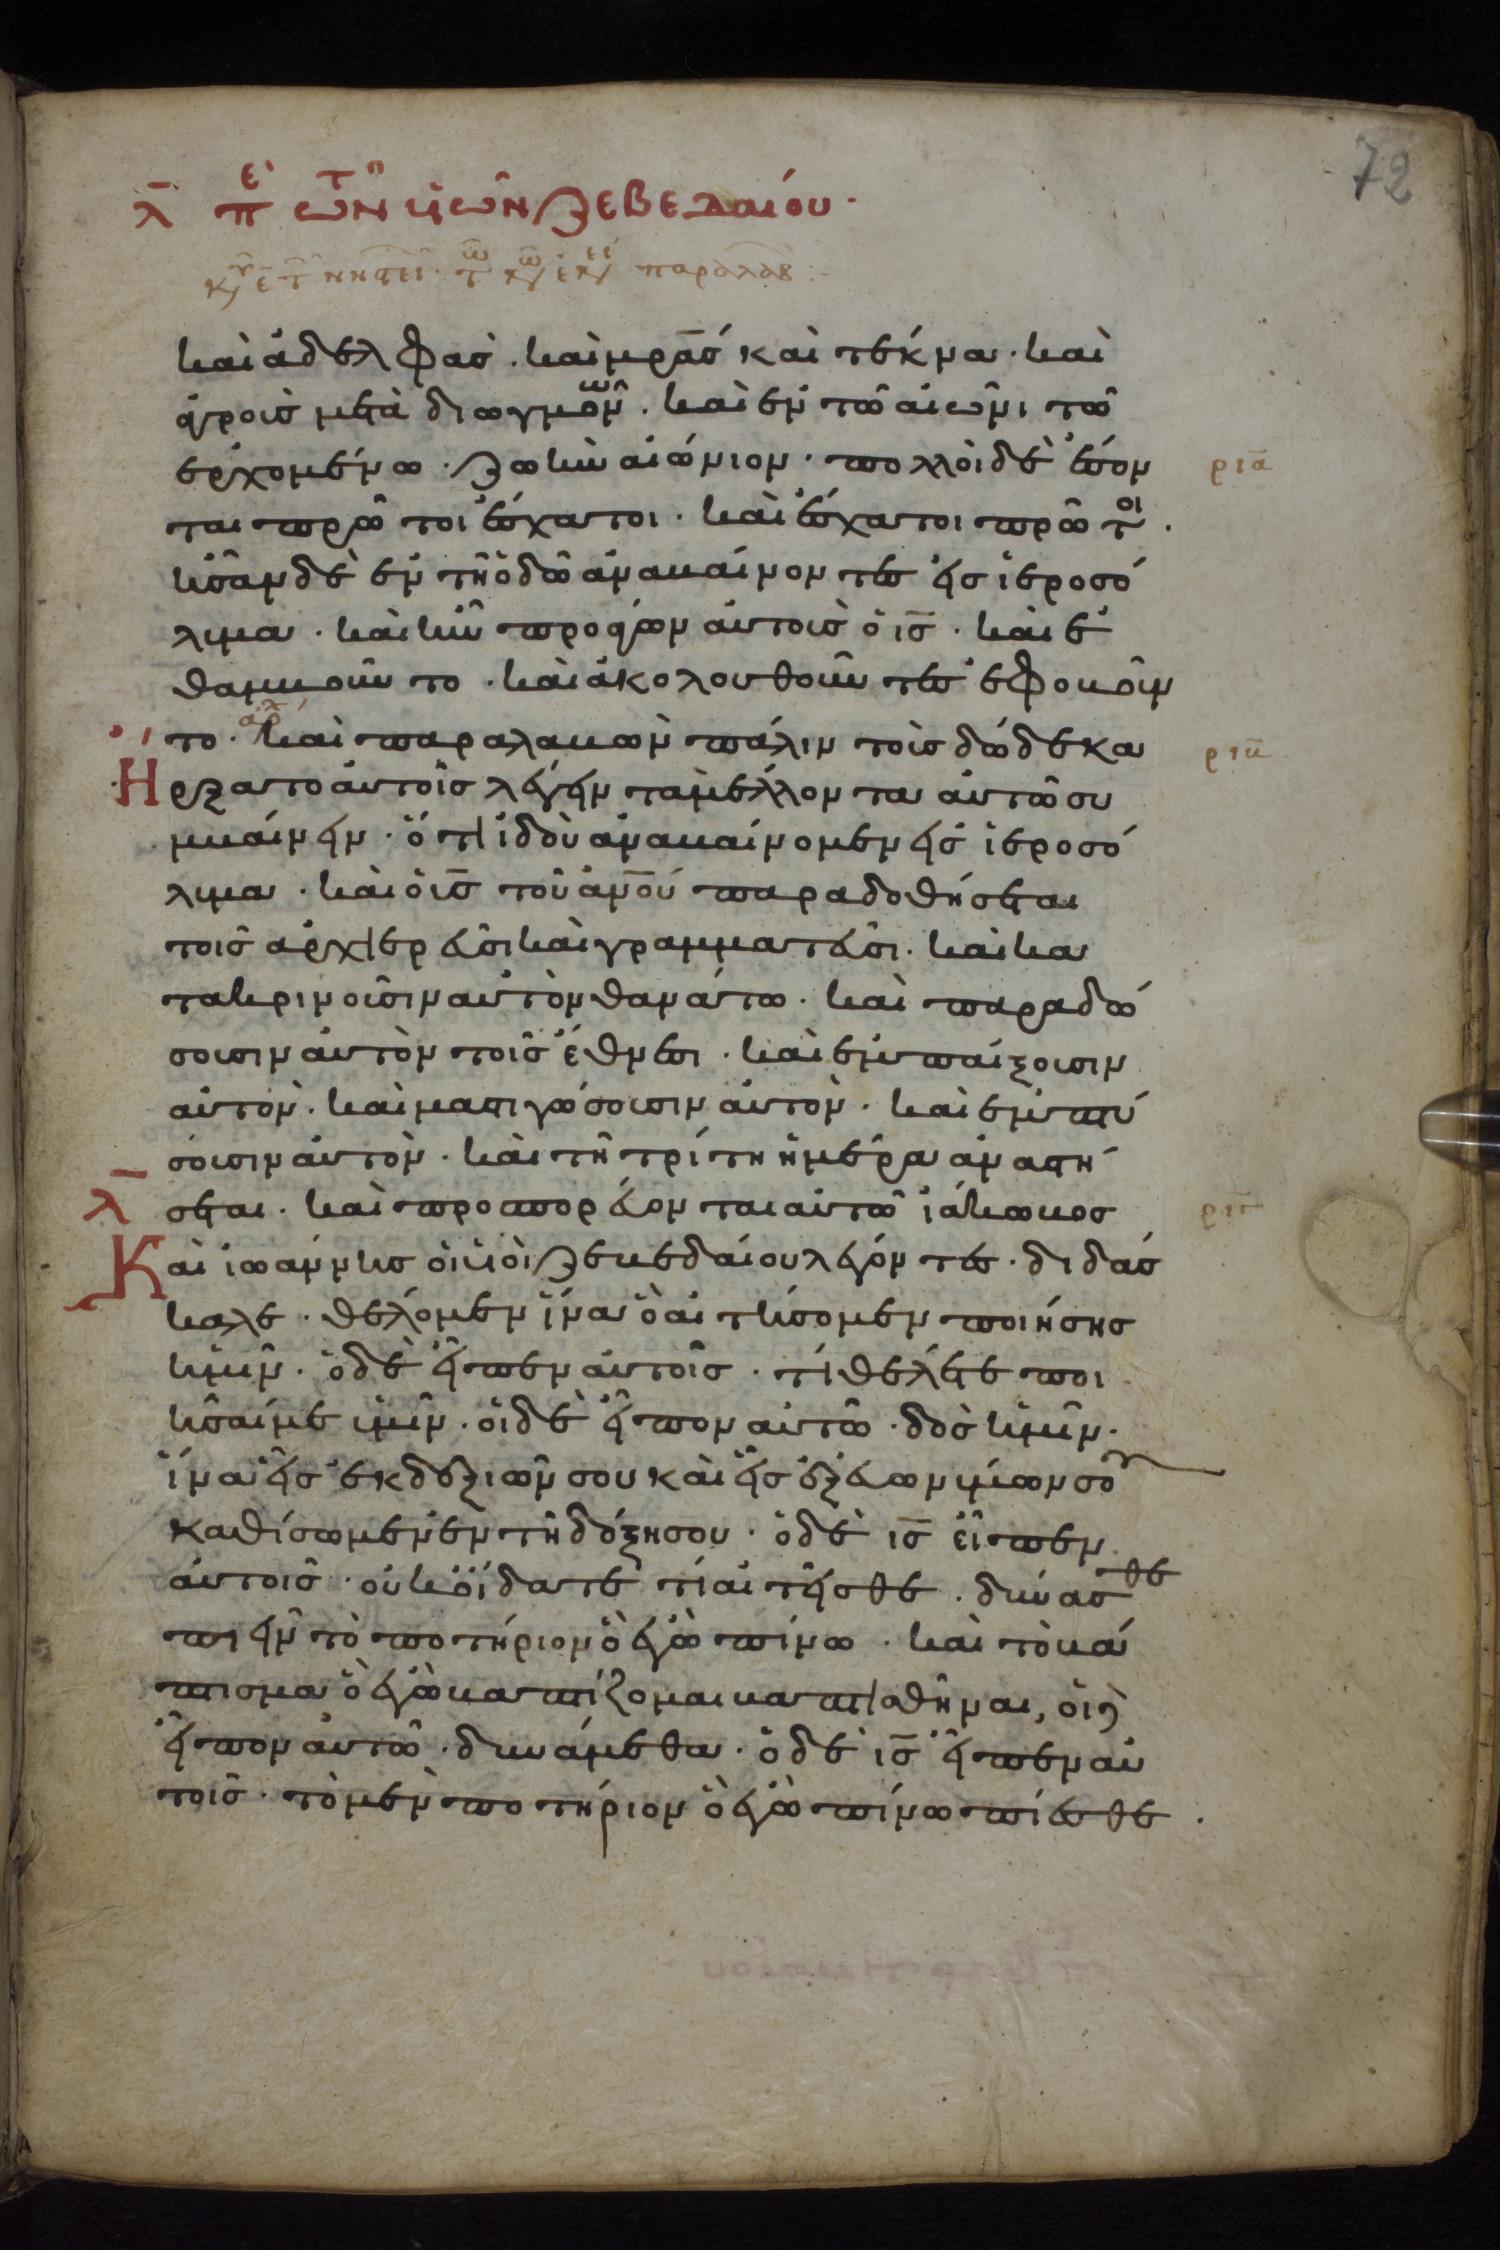 72
λ̅ πε τῶν ϋιῶν ζεβεδαίου·
κυ ε τ νηστει· τω κω εκει παραλαβ :-
καὶ ἀδελφας· καὶ μρ̅ας καὶ τέκνα· καὶ
ἀγροὺς μετὰ διωγμῶν. καὶ ἐν τῶ αἰῶνι τῶ
ἐρχομένω· ζωὴν αἰώνιον· πολλοὶ δὲ ἔσον
ρια̅
ται πρῶτοι ἔσχατοι· καὶ ἔσχατοι πρῶτοι.
ἦσαν δὲ ἐν τῆ ὁδῶ ἀναβαίνοντες εἰς ἱεροσό
λιμα· καὶ ἦν προάγων αὐτοὺς ὁ ις̅· καὶ ἐ
θαμβοῦντο· καὶ ἀκολουθοῦντες ἐφοβοῦν
το· ἀρχ καὶ παραλαβὼν πάλιν τοὺς δώδεκα
ριβ̅
Ηρξατο αὐτοῖς λέγειν τὰ μέλλοντα αὐτῶ συ
μβαίνειν· ὅτι ἰδοὺ ἀναβαίνομεν εἰς ἱεροσό
λιμα· καὶ ὁ ϋς̅ τοῦ ἀν̅ου παραδοθήσεται
τοῖς ἀρχιερεῦσι καὶ γραμματεῦσι· καὶ κα
τακρινοῦσιν αὐτὸν θανάτω· καὶ παραδώ
σουσιν αὐτὸν τοῖς ἔθνεσι· καὶ ἐμπαίξουσιν
αὐτὸν· καὶ μαστιγώσουσιν αὐτὸν· καὶ ἐμπτύ
σουσιν αὐτὸν· καὶ τῆ τρίτη ἡμέρα ἀναστή
λ̅ σεται. καὶ προπορεύονται αὐτῶ ἰάκωβος
ριγ̅
Καὶ ἰωάννης οἱ ϋἱοὶ ζεβεδαίου λέγοντες· διδάσ
καλε· θέλομεν ἵνα ὃ αἰτήσομεν ποιήσης
ἡμῖν· ὁ δὲ εἶπεν αὐτοῖς· τί θέλετε ποι
ῆσαί με ὑμῖν· οἱ δὲ εἶπον αὐτῶ· δὸς ἡμῖν·
ἵνα εἷς ἐκ δεξιῶν σου καὶ εἷς ἐξ εὐωνύμων σου
καθίσωμεν ἐν τῆ δόξη σου· ὁ δὲ ις̅ εἶπεν
αὐτοῖς· οὐκ οἴδατε τί αἰτεῖσθε· δύνασθε
πιεῖν τὸ ποτήριον ὃ ἐγὼ πίνω· καὶ τὸ βά
πτισμα ὃ ἐγὼ βαπτίζομαι βαπτισθῆναι, οἱ δὲ
εἶπον αὐτῶ· δυνάμεθα· ὁ δὲ ις̅ εἶπεν αὐ
τοῖς· τὸ μὲν ποτήριον ὃ ἐγὼ πίνω πίεσθε·